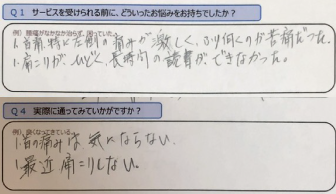 Q1 サービスを受けられる前に、どういったお悩みをお持ちでしたか？
例）腰痛がなかなか治らず、困っていた。
1.首痛、特に左側の痛みが激しく、ふり向くのが苦痛だった。
1.肩こりが、ひどく、長時間の読書が、できなかった。
Q4 実際に通ってみていかがですか？
例）良くなってきている。
1.首の痛みは気にならない。
1.最近肩こりしない。